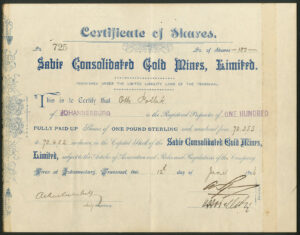 Certificate of Shares.
No. 725 No. of Shares 100
Sabie Consolidated Gold Mines, Limited.
REGISTERED UNDER THE LIMITED LIABILITY LAWS OF THE TRANSVAAL
This is to Certify that Otto
of JOHANNESBURG is the Registered Proprietor of ONE HUNDRED
FULLY PAID-UP Shares of ONE POUND STERLING each, numbered from
to inclusive, in the Capital Stock of the Sabie Consolidated Gold Mines,
Limited, subject to the Articles of Association and Rules and Regulations of the Company.
Given at Johannesburg, Transvaal this day of